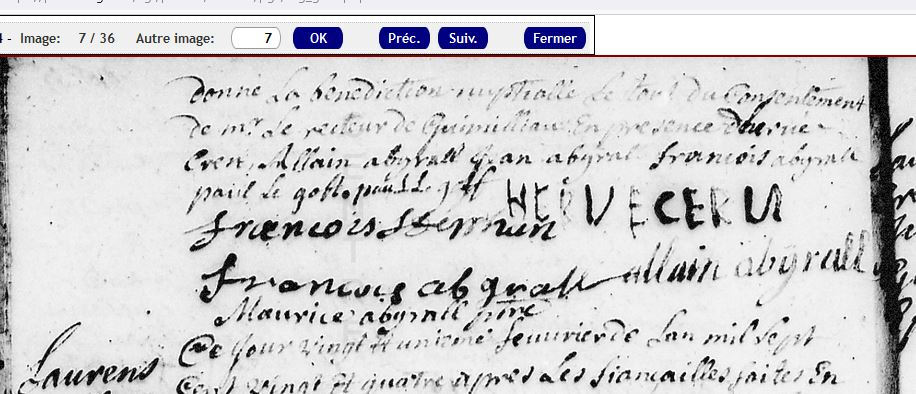 4 - Image: 7 / 36 Autre image: 7 OK Préc. Suiv. Fermer
donné la benediction nuptialle le tout du Consentement
de mr le recteur de Guimilliau En presence d'hervé
Cren, Allain abgrall Jean abgral francois abgrall
paul le goff paul le goff HERVE CEREN
francois
francois abgrall allain abgrall
Maurice abgrall ptre
Ce jour vingt et unieme feuvrier de Lan mil sept
Laurens
Cent vingt Et quatre apres Les fiançailles faites En